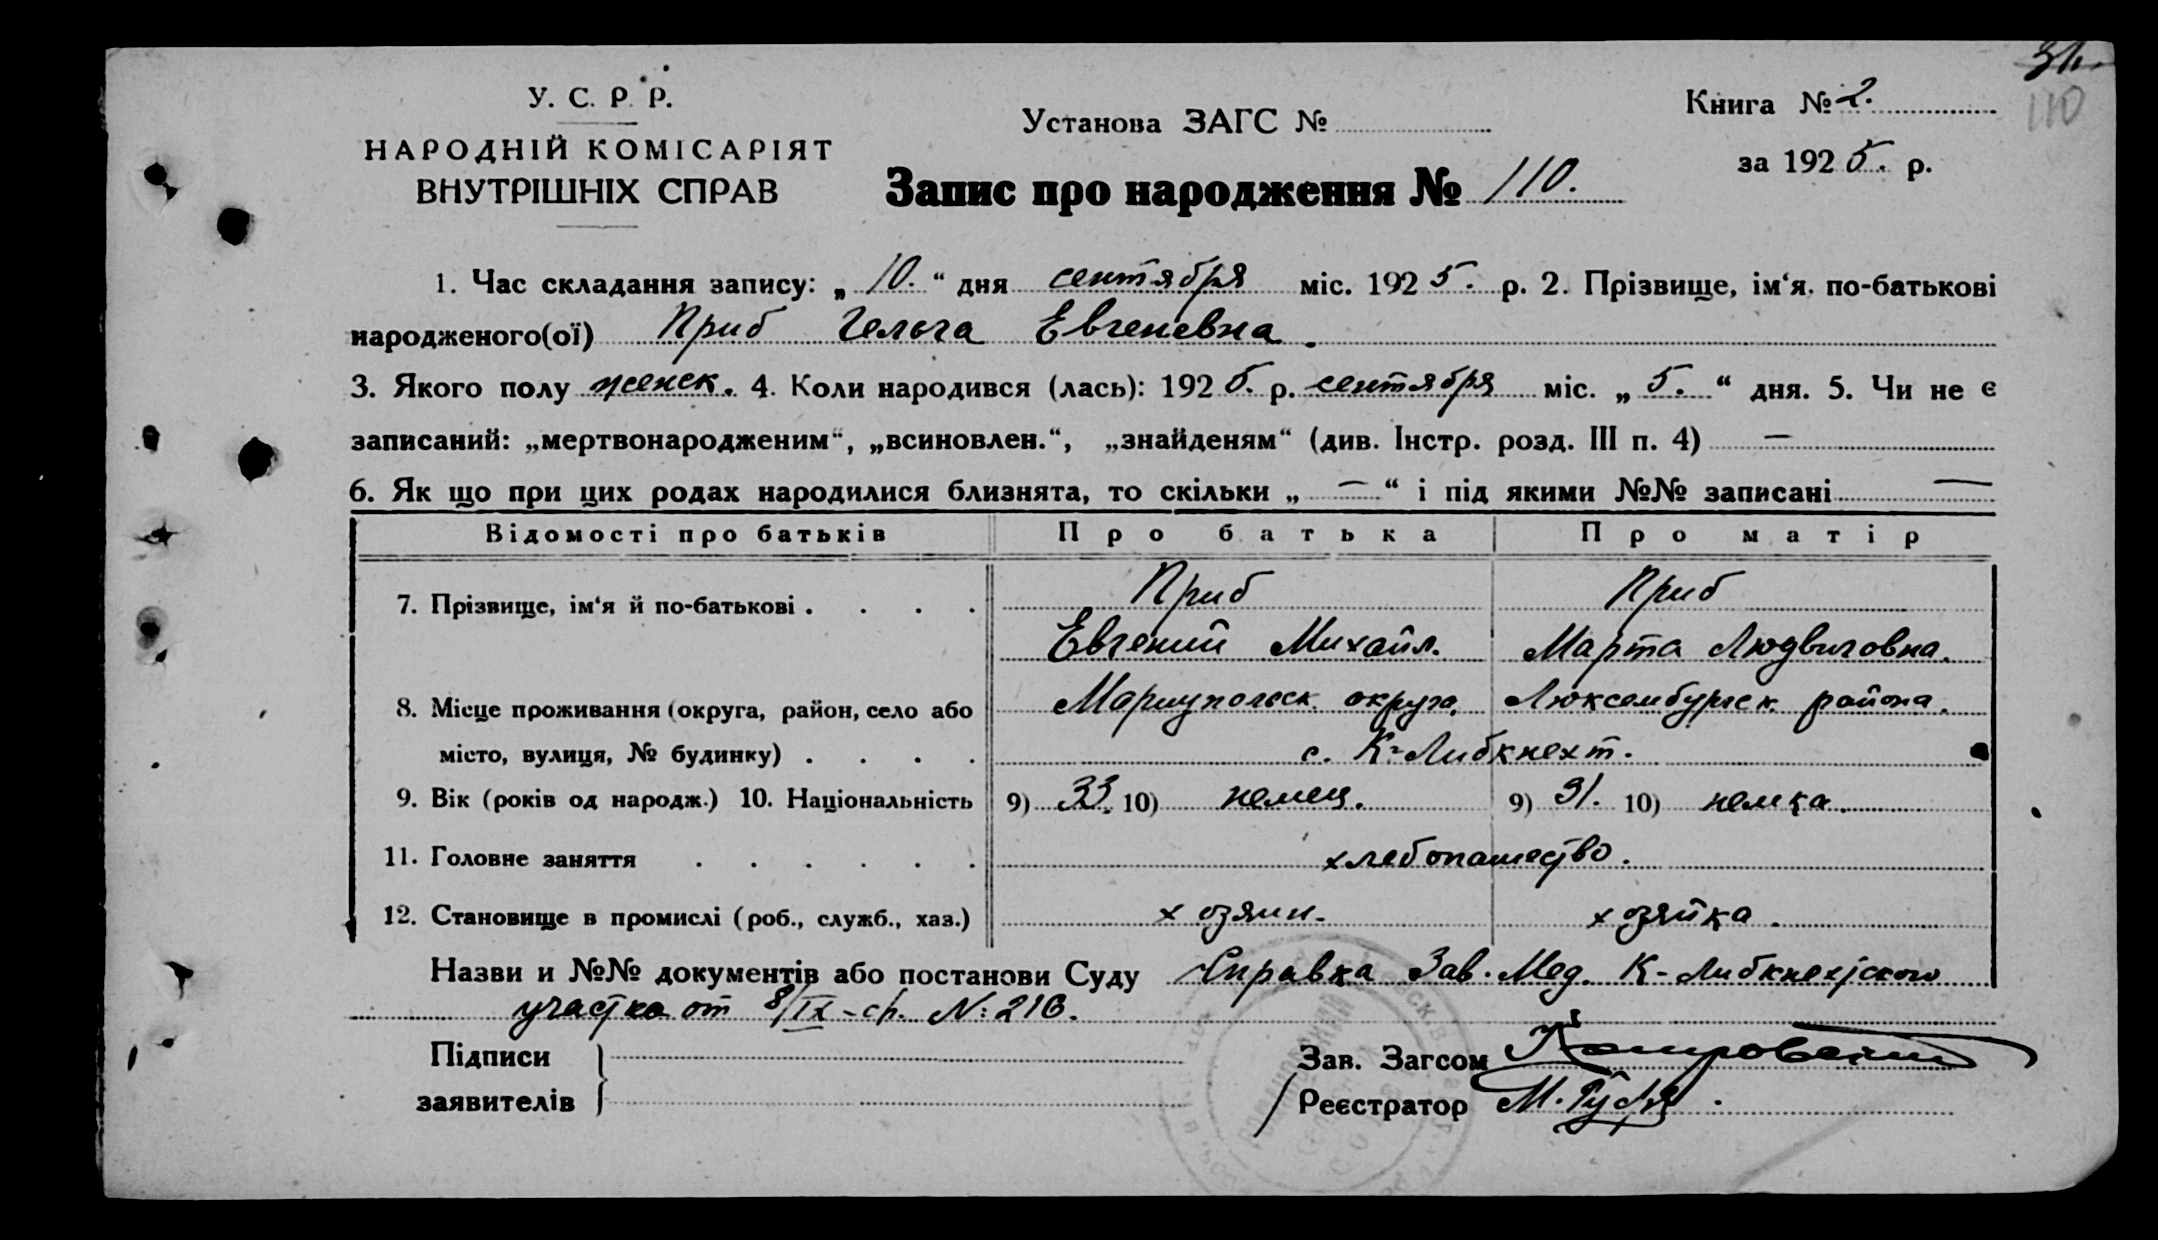 У. С. Р. Р.
НАРОДНІЙ КОМІСАРІЯТ
ВНУТРІШНІХ СПРАВ
Установа ЗАГС №
Запис про народження № 110.
Книга № 2.
110
за 1925. р.
1. Час складання запису: „10.“ дня сентября міс. 1925. р. 2. Прізвище, ім‘я. по-батькові
народженого(ої) Приб Гельга Евгеневна.
3. Якого полу женск. 4. Коли народився (лась): 1925. р. сентября міс. „5.“ дня. 5. Чи не є
записаний: „мертвонародженим“, „всиновлен.“, „знайденям“ (див. Інстр. розд. III п. 4) —
6. Як що при цих родах народилися близнята, то скільки „—“ і під якими №№ записані —
Відомості про батьків Про батька Про матір
7. Прізвище, ім‘я й по-батькові . . . . Приб Приб
Евгений Михайл. Марта Людвиговна.
8. Місце проживання (округа, район, село або Мариупольск. округа, Люксембургск. района.
місто, вулиця, № будинку) . . . . с. К-Либкнехт.
9. Вік (років од народж.) 10. Національність 9) 33. 10) немец. 9) 31. 10) немка.
11. Головне заняття . . . . . . хлебопашество.
12. Становище в промислі (роб., служб., хаз.) хозяин. хозяйка.
Назви и №№ документів або постанови Суду Справка Зав. Мед. К-Либкнехтского
участка от 8/IX-с/г. №: 216.
Підписи
заявителів
Зав. Загсом
Реєстратор М.